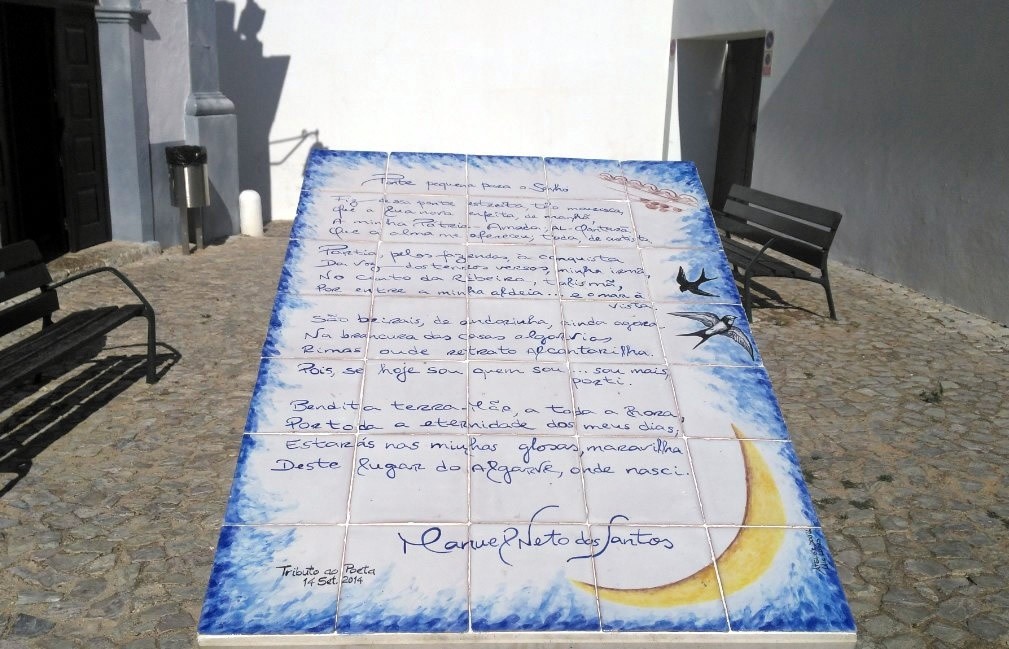 Ponte pequena para o Sonho
Fiz dessa ponte estreita, tão
Que a lua nova enfeita, de manhã,
A minha Pátria-Amada,
Que a alma me ofereceu, toda, de
Partia, pelas fazendas, à conquista
Da Voz dos tenros versos, minha irmã,
No Canto da Ribeira, talismã,
Por entre a minha aldeia... e o mar à
vista
São beirais, de andorinha, ainda agora
Na brancura das casas algarvias
Rimas onde retrato Alcantarilha.
Pois, se hoje sou quem sou... sou mais,
por ti.
Bendita terra-Mãe, a toda a hora,
Por toda a eternidade dos meus dias,
Estarás nas minhas glosas, maravilha
Deste lugar do Algarve, onde nasci.
Manuel Neto dos Santos
Tributo ao Poeta
14 Set. 2014